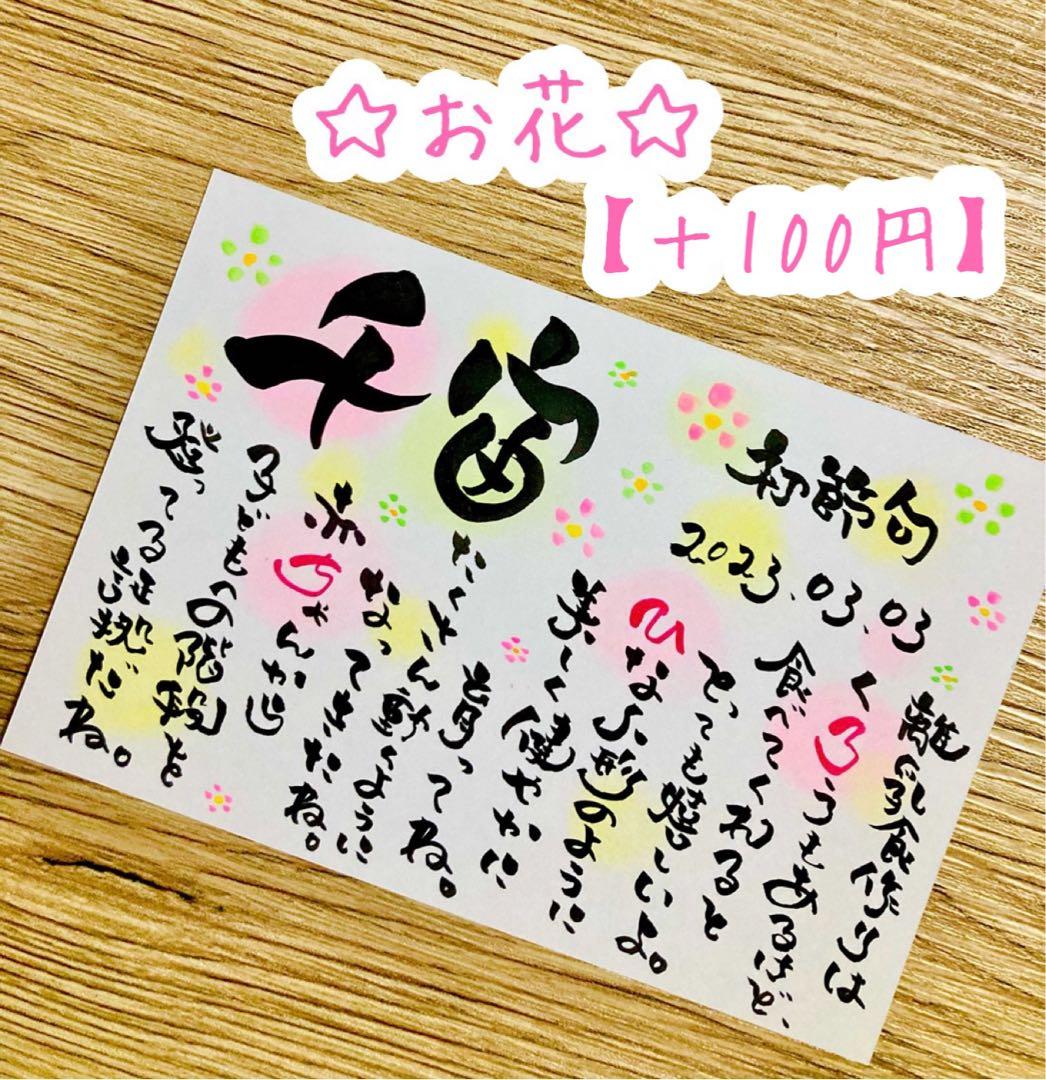 ☆お花☆
【+100円】
千宙
初節句
2023.03.03
離乳食作りは
くろうもあるけど、
食べてくれると
とっても嬉しいよ。
ひな人形のように
美しく健やかに
育ってね。
たくさん動くように
なってきたね。
赤ちゃんから
子どもへの階段を
登ってる証拠だね。